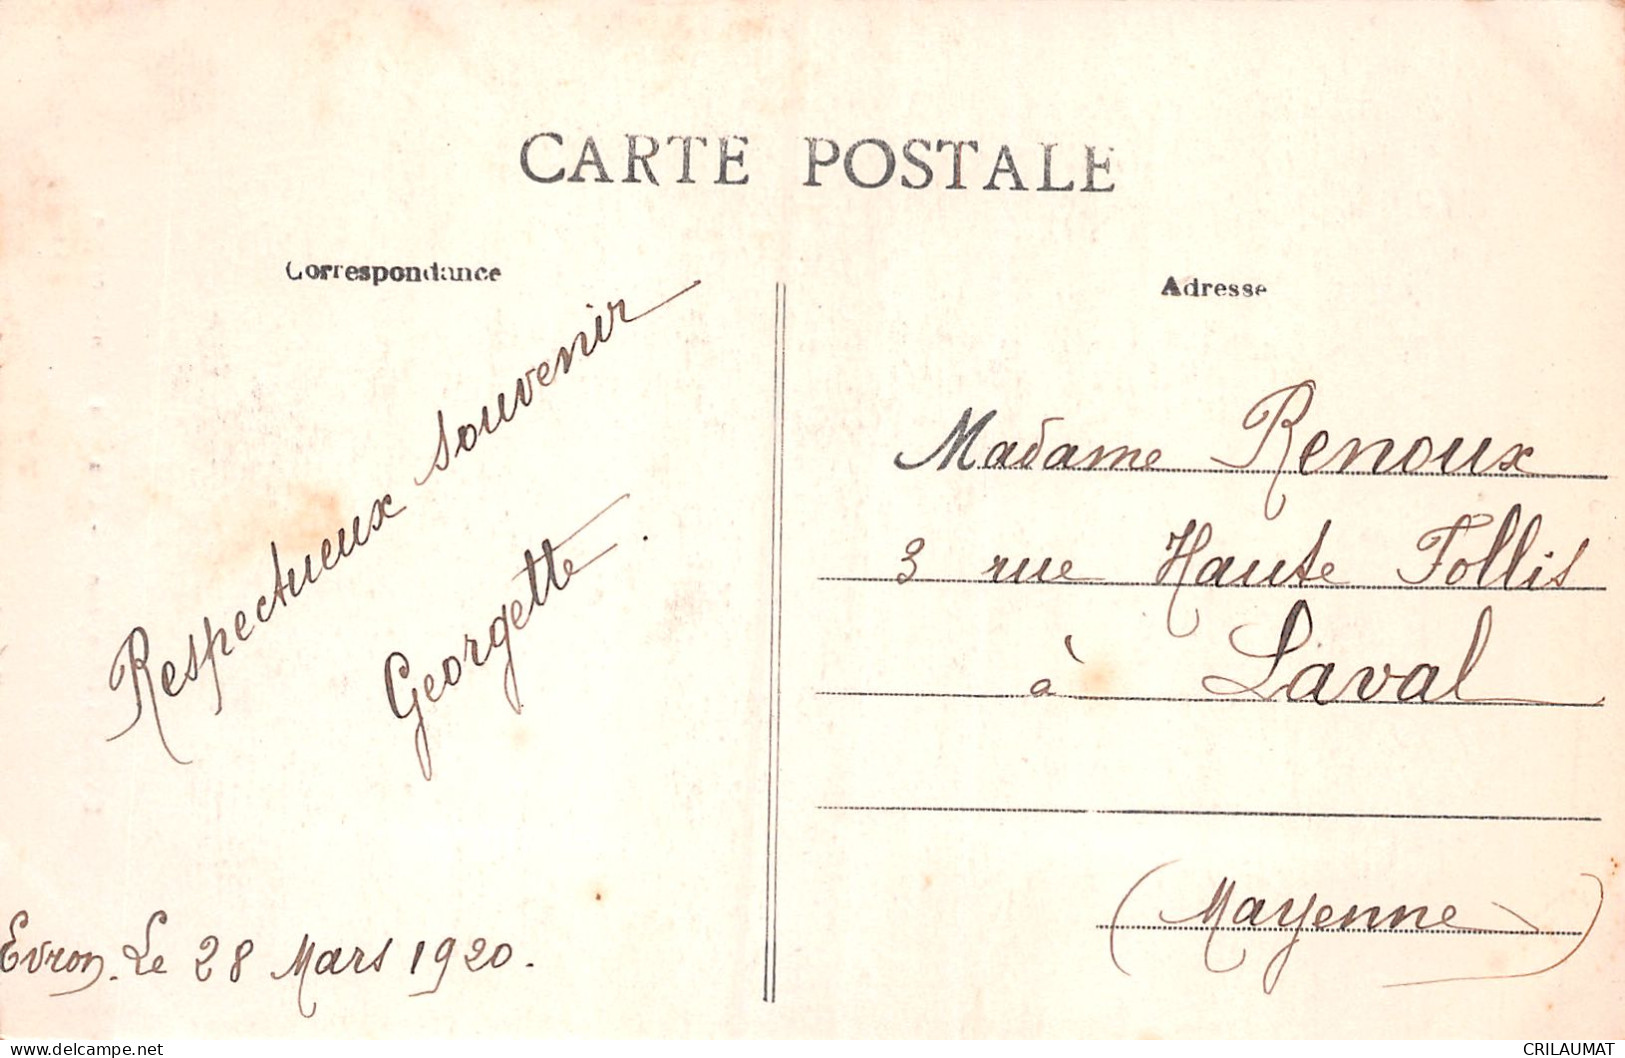 CARTE POSTALE
Correspondance
Respectueux souvenir
Georgette.
Evron. Le 28 Mars 1920.
Adresse
Madame Renoux
3 rue Haute Follis
à Laval
(Mayenne)
delcampe.net
CRILAUMAT